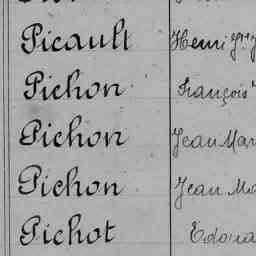 Picault Henri
Pichon François
Pichon Jean Mar
Pichon Jean Ma
Pichot Edoua